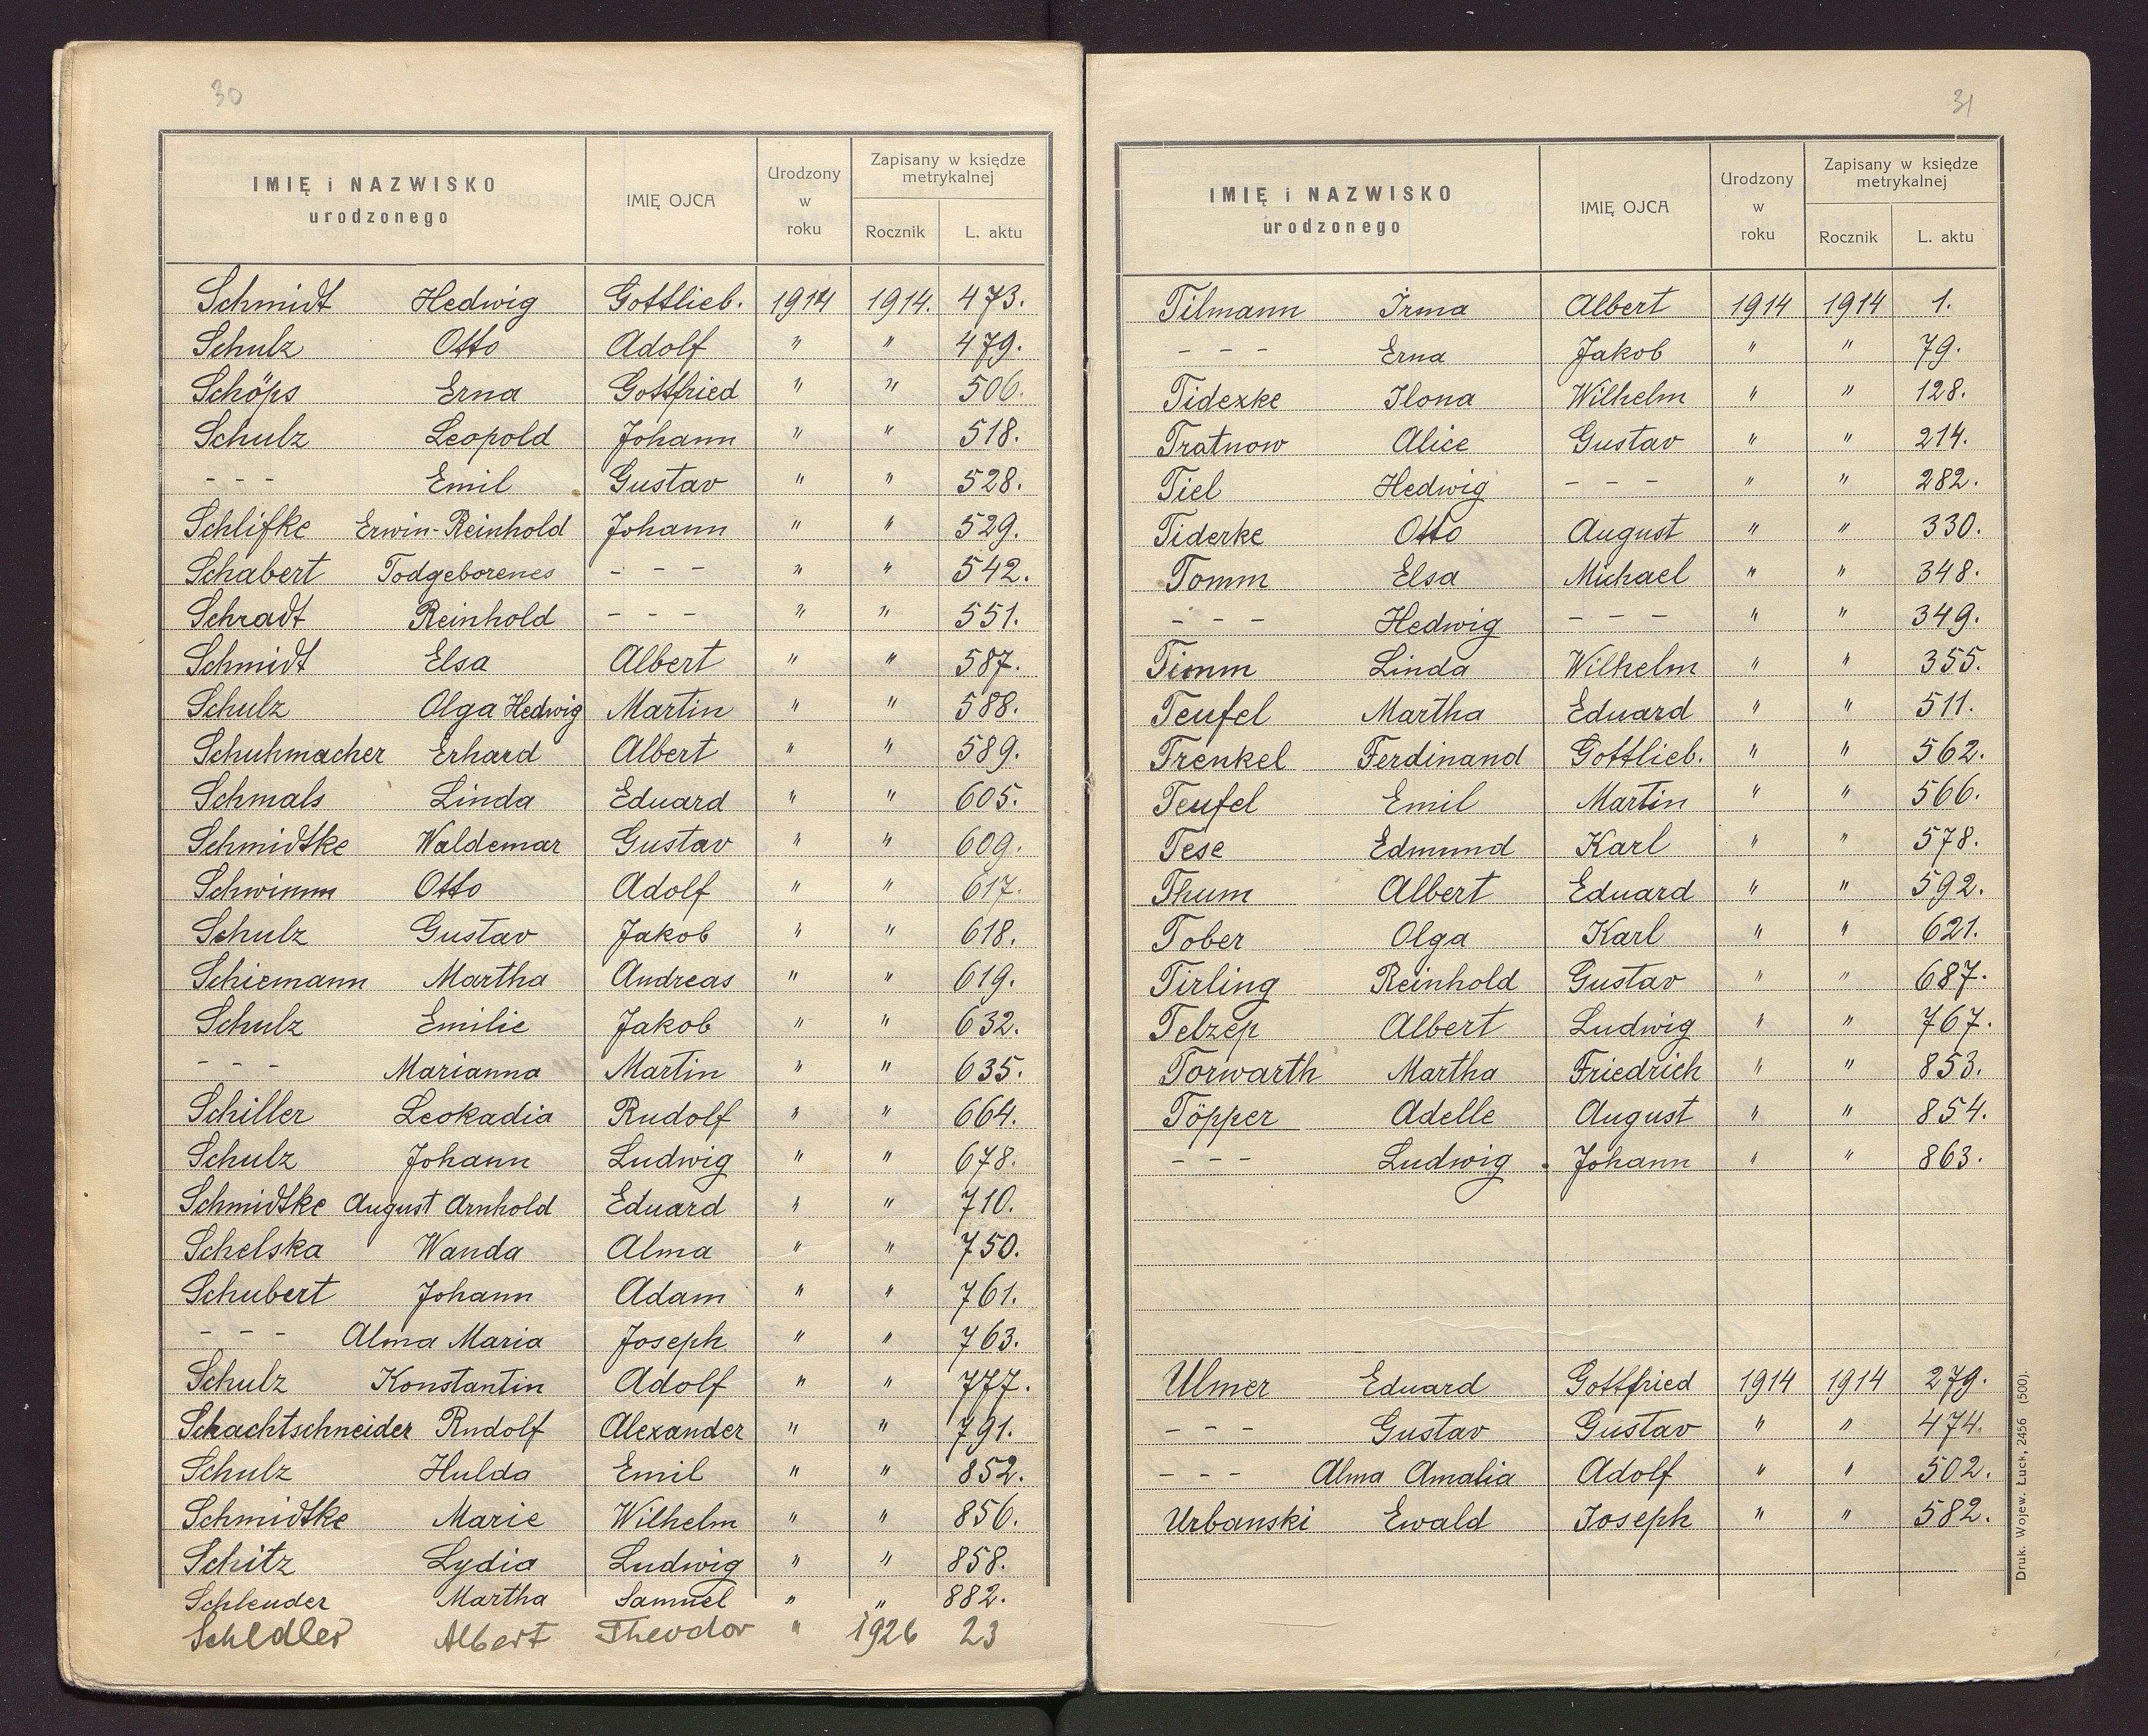 30
IMIĘ i NAZWISKO urodzonego IMIĘ OJCA Urodzony w roku Zapisany w księdze metrykalnej Rocznik L. aktu
Schmidt Hedwig Gottlieb. 1914 1914. 473.
Schulz Otto Adolf " " 479.
Schöps Erna Gottfried " " 506.
Schulz Leopold Johann " " 518.
- - - Emil Gustav " " 528.
Schlifke Erwin-Reinhold Johann " " 529.
Schabert Todgeborenes - - - " " 542.
Schradt Reinhold - - - " " 551.
Schmidt Elsa Albert " " 587.
Schulz Olga Hedwig Martin " " 588.
Schuhmacher Erhard Albert " " 589.
Schmals Linda Eduard " " 605.
Schmidtke Waldemar Gustav " " 609.
Schwimm Otto Adolf " " 617.
Schulz Gustav Jakob " " 618.
Schiemann Martha Andreas " " 619.
Schulz Emilie Jakob " " 632.
- - - Marianna Martin " " 635.
Schiller Leokadia Rudolf " " 664.
Schulz Johann Ludwig " " 678.
Schmidtke August Arnhold Eduard " " 710.
Schelska Wanda Alma " " 750.
Schubert Johann Adam " " 761.
- - - Alma Maria Joseph " " 763.
Schulz Konstantin Adolf " " 777.
Schachtschneider Rudolf Alexander " " 791.
Schulz Hulda Emil " " 852.
Schmidtke Marie Wilhelm " " 856.
Schitz Lydia Ludwig " " 858.
Schleuder Martha Samuel " " 882.
Albert Theodor " 1926 23
31
IMIĘ i NAZWISKO urodzonego IMIĘ OJCA Urodzony w roku Zapisany w księdze metrykalnej Rocznik L. aktu
Tilmann Irma Albert 1914 1914 1.
- - - Erna Jakob " " 79.
Tidezke Ilona Wilhelm " " 128.
Tratnow Alice Gustav " " 214.
Tiel Hedwig - - - " " 282.
Tiderke Otto August " " 330.
Tomm Elsa Michael " " 348.
- - - Hedwig - - - " " 349.
Timm Linda Wilhelm " " 355.
Teufel Martha Eduard " " 511.
Trenkel Ferdinand Gottlieb. " " 562.
Teufel Emil Martin " " 566.
Tese Edmund Karl " " 578.
Thum Albert Eduard " " 592.
Tober Olga Karl " " 621.
Tirling Reinhold Gustav " " 687.
Telzep Albert Ludwig " " 767.
Torwarth Martha Friedrich " " 853.
Töpper Adelle August " " 854.
- - - Ludwig Johann " " 863.
Ulmer Eduard Gottfried 1914 1914 279.
- - - Gustav Gustav " " 474.
- - - Alma Amalia Adolf " " 502.
Urbanski Ewald Joseph " " 582.
Druk. Wojew. Łuck, 2456 (500).